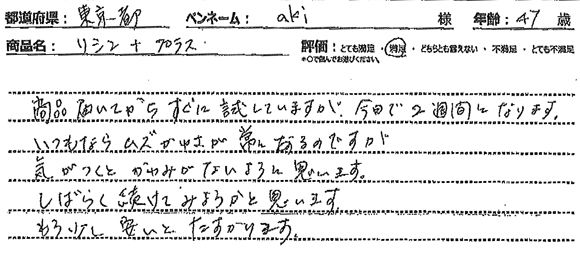 都道府県： 東京都 ペンネーム： aki 様 年齢： 47 歳
商品名： リシン＋プラス 評価： とても満足 ・ 満足 ・ どちらとも言えない ・ 不満足 ・ とても不満足
※○で囲んでお選びください。
商品届いてからすぐに試していますが、今日で2週間になります。
いつもなら ムズがゆさが 常にあるのですが
気がつくと かゆみがないように思います。
しばらく続けてみようかと思います。
もう少し安いと たすかります。